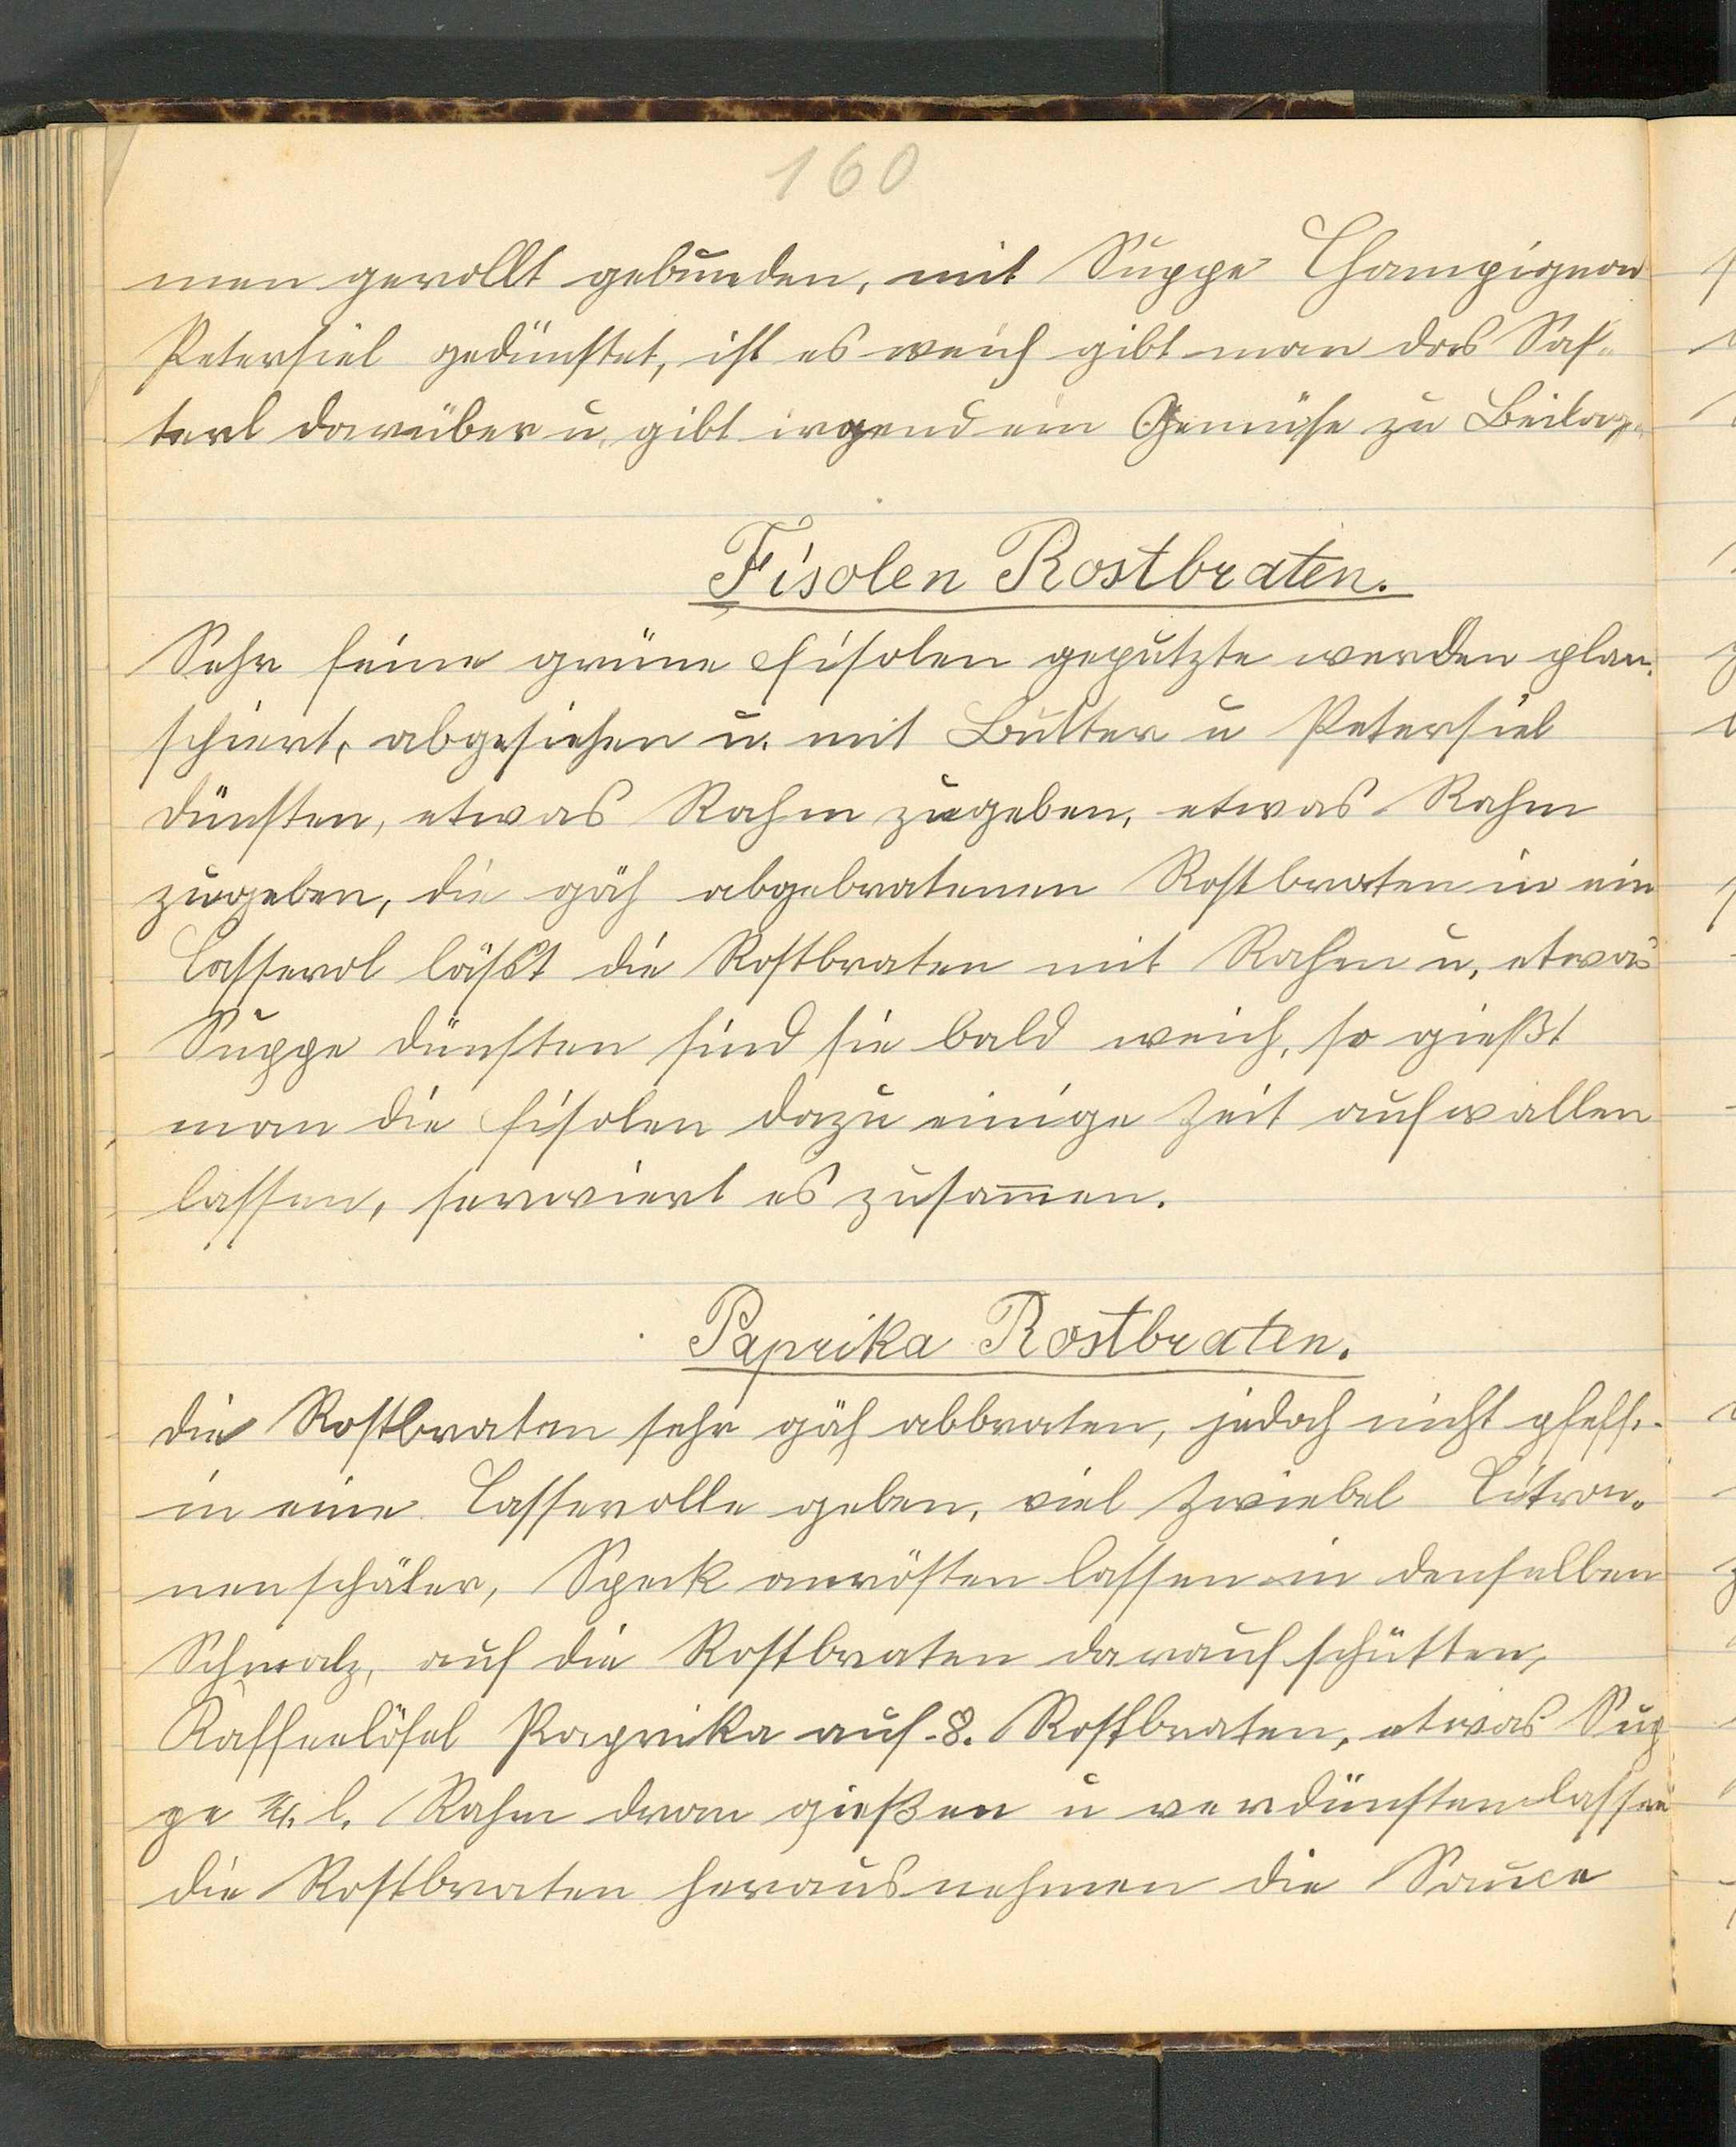 160
men gerollt gebunden, mit Suppe Champignon
Petersiel gedünstet, ist es weich gibt man das Saf-
terl darüber u. gibt irgend ein Gemüse zu Beilag.
Fisolen Rostbraten.
Sehr feine grüne Fisolen geputzte werden plan-
schiert, abgesiehen u. mit Butter u Petersiel
dünsten, etwas Rahm zugeben, etwas Rahm
zugeben, die gäh abgebratenen Rostbraten in ein
Casserol läßt die Rostbraten mit Rahm u. etwas
Suppe dünsten sind sie bald weich, so gießt
man die Fisolen dazu einige Zeit aufwallen
lassen, serwiert es zusam̄en.
Paprika Rostbraten.
die Rostbraten sehr gäh abbraten, jedoch nicht pfeff.
in eine Casserolle geben, viel Zwiebel Citron-
nenschäler, Speck anrösten lassen in denselben
Schmalz, auf die Rostbraten darauf schütten,
Kaffeelöfel Paprika auf 8. Rostbraten, etwas Sup
pe l. Rahm dran gießen u verdünsten lassen
die Rostbraten herausnehmen die Sauce